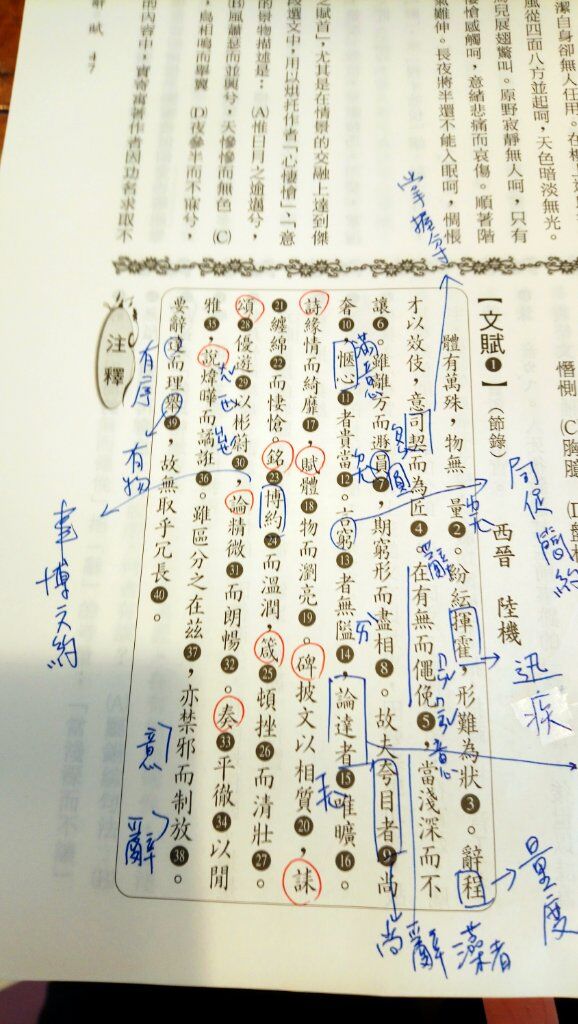 潔自身卻無人任用。在
風從四面八方並起呵，天色暗淡無光。
鳥兒展翅驚叫。原野寂靜無人呵，只有
悽愴感觸呵，意緒悲痛而哀傷。順著階
氣難伸。長夜將半還不能入眠呵，惆悵
之賦首」，尤其是在情景的交融上達到傑
段選文中，用以烘托作者「心悽愴」、「意
的景物描述是：(A)惟日月之逾邁兮，
(B)風蕭瑟而並興兮，天慘慘而無色 (C)
鳥相鳴而舉翼 (D)夜參半而不寐兮，
的內容中，實寄寓著作者因功名求取不
辭賦 47
憯惻 (C)
【文賦❶】（節錄） 西晉 陸機
體有萬殊，物無一量❷。紛紜揮霍，形難為狀❸。辭程
才以效伎，意司契而為匠❹。在有無而僶俛❺，當淺深而不
讓❻。雖離方而遯員❼，期窮形而盡相❽。故夫夸目者❾尚
奢❿，愜心⓫者貴當⓬。言窮⓭者無隘⓮，論達者⓯唯曠⓰。
詩緣情而綺靡⓱，賦體⓲物而瀏亮⓳。碑披文以相質⓴，誄
㉑纏綿㉒而悽愴。銘㉓博約㉔而溫潤，箴㉕頓挫㉖而清壯㉗。
頌㉘優遊㉙以彬蔚㉚，論精微㉛而朗暢㉜。奏㉝平徹㉞以閒
雅㉟，說煒曄而譎誑㊱。雖區分之在茲㊲，亦禁邪而制放㊳。
要辭達而理舉㊴，故無取乎冗長㊵。
注釋
掌握
局促簡約
迅疾
量度
尚辭藻者
滿意
圓
有序
有物
事博文約
意
辭